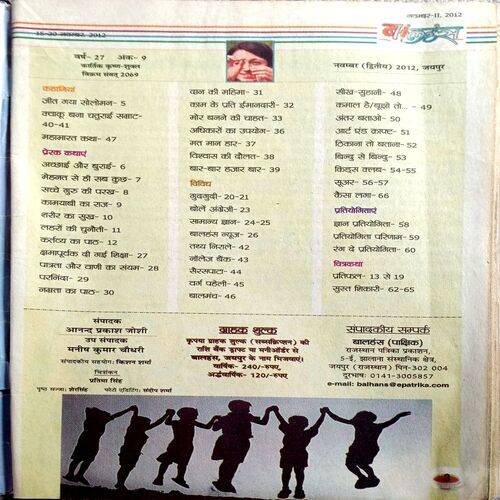 नवम्बर-11, 2012
15-30 नवम्बर, 2012
बालहंस
वर्ष- 27 अंक- 9
कार्तिक कृष्ण-शुक्ल
विक्रम संवत् 2069
नवम्बर (द्वितीय) 2012, जयपुर
कहानियां
जीत गया सोलोमन- 5
क्वाकू बना चतुराई सम्राट-
40-41
महाभारत कथा- 47
प्रेरक कथाएं
अच्छाई और बुराई- 6
मेहनत से ही सब कुछ- 7
सच्चे गुरु की परख- 8
कामयाबी का राज- 9
शरीर का सुख- 10
लहरों की चुनौती- 11
कर्तव्य का पाठ- 12
क्षमापूर्वक दी गई शिक्षा- 27
पात्रता और वाणी का संयम- 28
परनिंदा- 29
नम्रता का पाठ- 30
दान की महिमा- 31
काम के प्रति ईमानदारी- 32
मोर बनने की चाहत- 33
अधिकारों का उपयोग- 36
मत मान हार- 37
विश्वास की दौलत- 38
बार-बार हजार बार- 39
विविध
गुदगुदी- 20-21
बोलें अंग्रेजी- 23
सामान्य ज्ञान- 24-25
बालहंस न्यूज- 26
तथ्य निराले- 42
नॉलेज बैंक- 43
सैरसपाटा- 44
वर्ग पहेली- 45
बालमंच- 46
सीख-सुहानी- 48
कमाल है/बूझो तो... - 49
अंतर बताओ- 50
आर्ट एंड क्राफ्ट- 51
ठिकाना तो बताना- 52
बिन्दु से बिन्दु- 53
किड्स क्लब- 54-55
सूअर- 56-57
कैसा लगा- 66
प्रतियोगिताएं
ज्ञान प्रतियोगिता- 58
प्रतियोगिता परिणाम- 59
रंग दे प्रतियोगिता- 60
चित्रकथा
प्रतिफल- 13 से 19
सुस्त शिकारी- 62-65
संपादक
आनन्द प्रकाश जोशी
उप संपादक
मनीष कुमार चौधरी
संपादकीय सहयोग: किशन शर्मा
चित्रांकन
प्रतिमा सिंह
पृष्ठ सज्जा: शेरसिंह फोटो एडिटिंग: संदीप शर्मा
ग्राहक शुल्क
कृपया ग्राहक शुल्क (सब्सक्रिप्शन) की
राशि बैंक ड्राफ्ट या मनीऑर्डर से
बालहंस, जयपुर के नाम भिजवाएं।
वार्षिक- 240/-रुपए,
अर्द्धवार्षिक- 120/-रुपए
संपादकीय सम्पर्क
बालहंस (पाक्षिक)
राजस्थान पत्रिका प्रकाशन,
5-ई, झालाना संस्थानिक क्षेत्र,
जयपुर (राजस्थान) पिन-302 004
दूरभाष: 0141-3005857
e-mail: balhans@epatrika.com